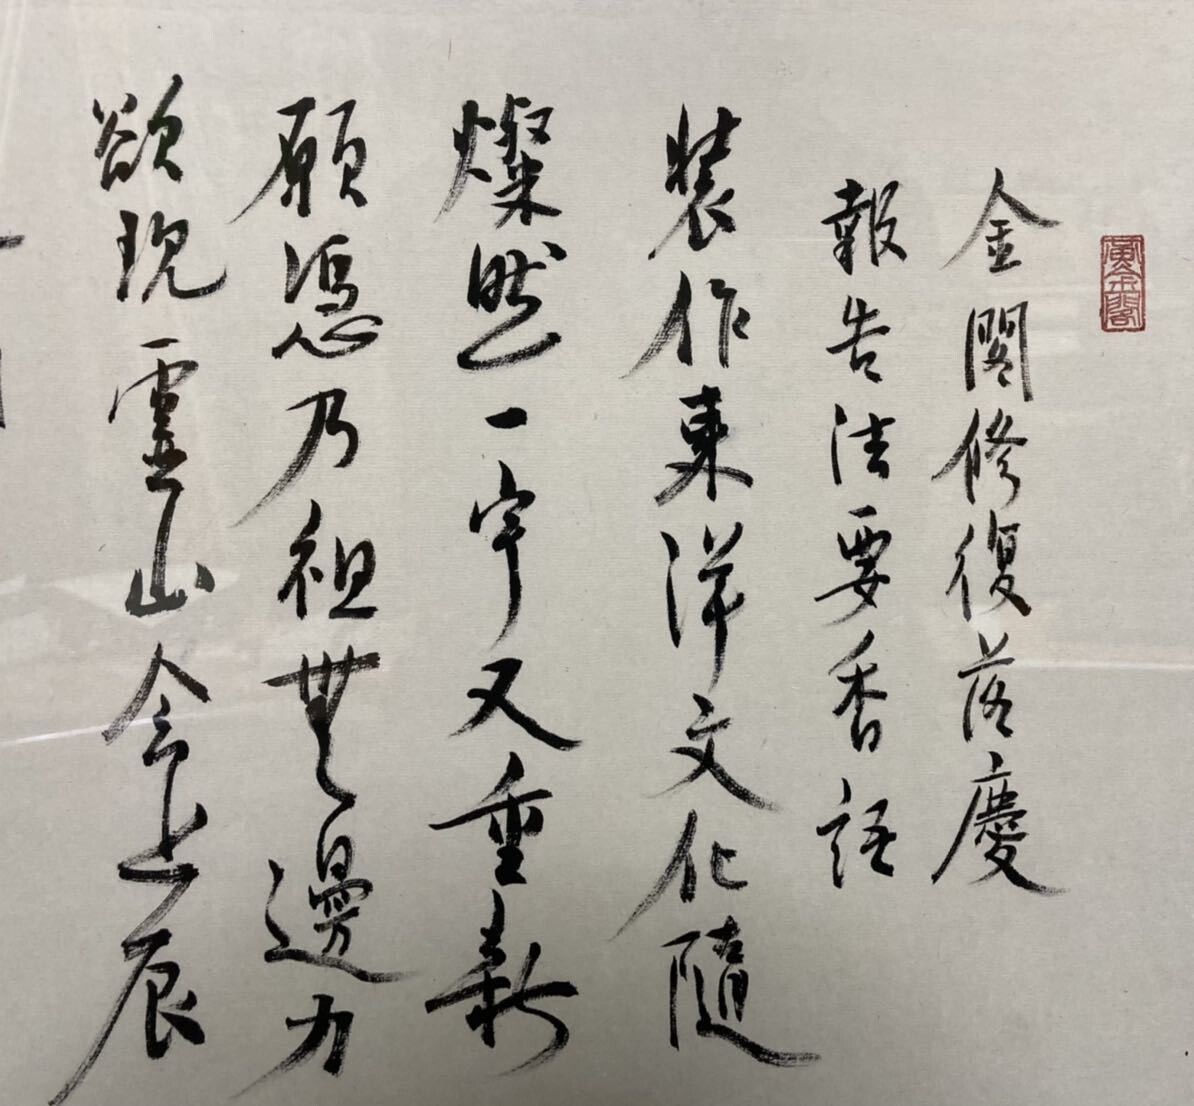 金閣修復落慶
報告法要香語
装作東洋文化隨
燦然一宇又重新
願憑乃祖無邊力
欲現霊山会上辰